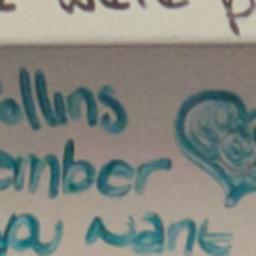 were p
ollins
amber
you want